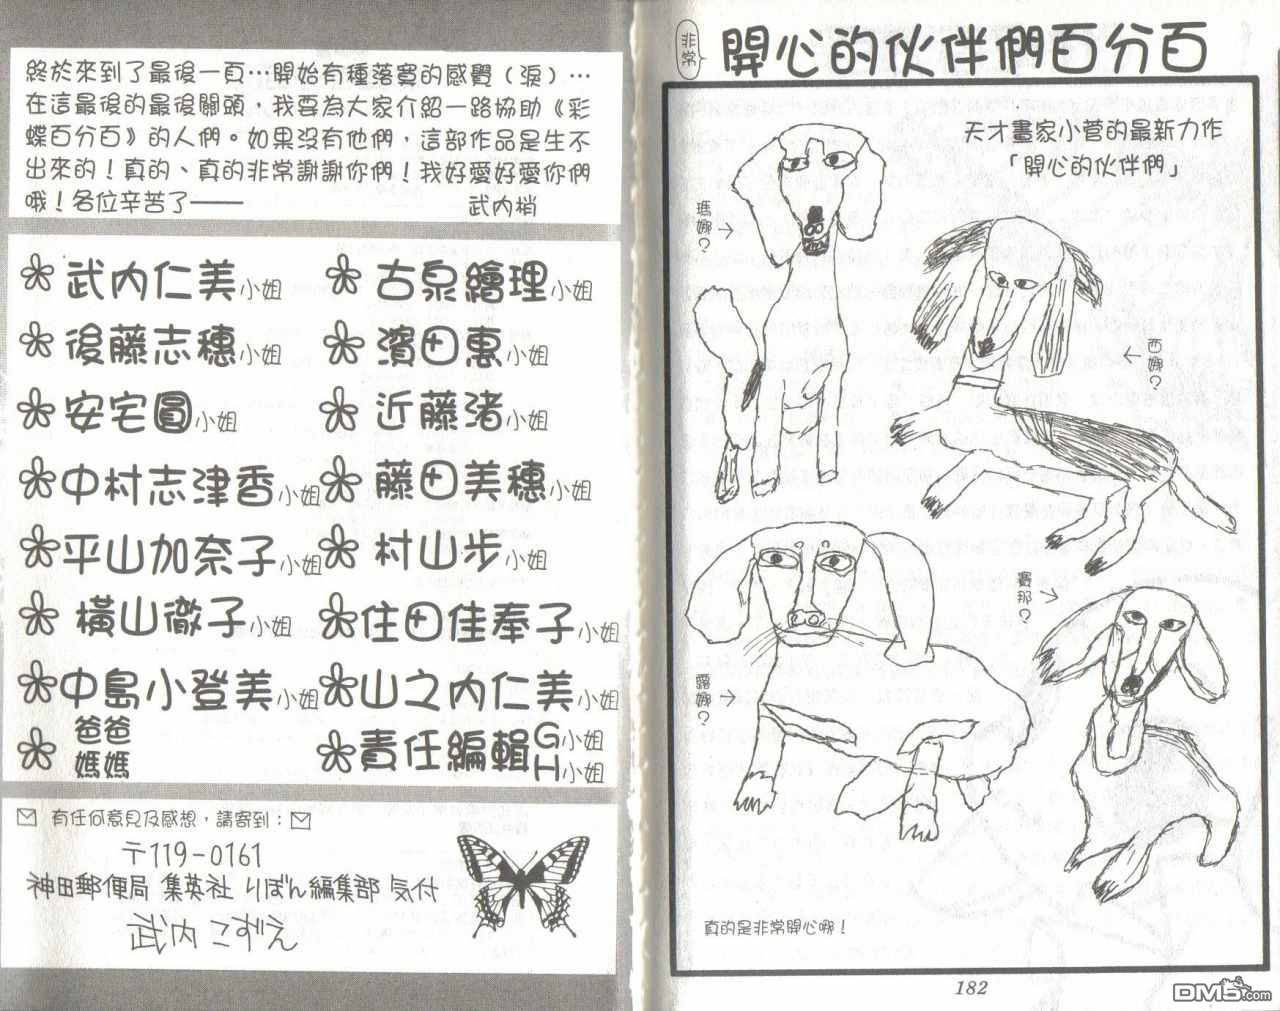 非常
開心的伙伴們百分百
天才畫家小菅的最新力作
「開心的伙伴們」
瑪娜?
西娜?
賽那?
露娜?
真的是非常開心哪!
182
終於來到了最後一頁…開始有種落寞的感覺(淚)…
在這最後的最後關頭,我要為大家介紹一路協助《彩
蝶百分百》的人們。如果沒有他們,這部作品是生不
出來的!真的、真的非常謝謝你們!我好愛好愛你們
哦!各位辛苦了——
武內梢
武內仁美小姐
古泉繪理小姐
後藤志穗小姐
濱田惠小姐
安宅圓小姐
近藤渚小姐
中村志津香小姐
藤田美穗小姐
平山加奈子小姐
村山步小姐
橫山徹子小姐
住田佳奉子小姐
中島小登美小姐
山之內仁美小姐
爸爸
媽媽
責任編輯G小姐
H小姐
有任何意見及感想,請寄到:
〒119-0161
神田郵便局 集英社 りぼん編集部 気付
武内こずえ
DM5.com